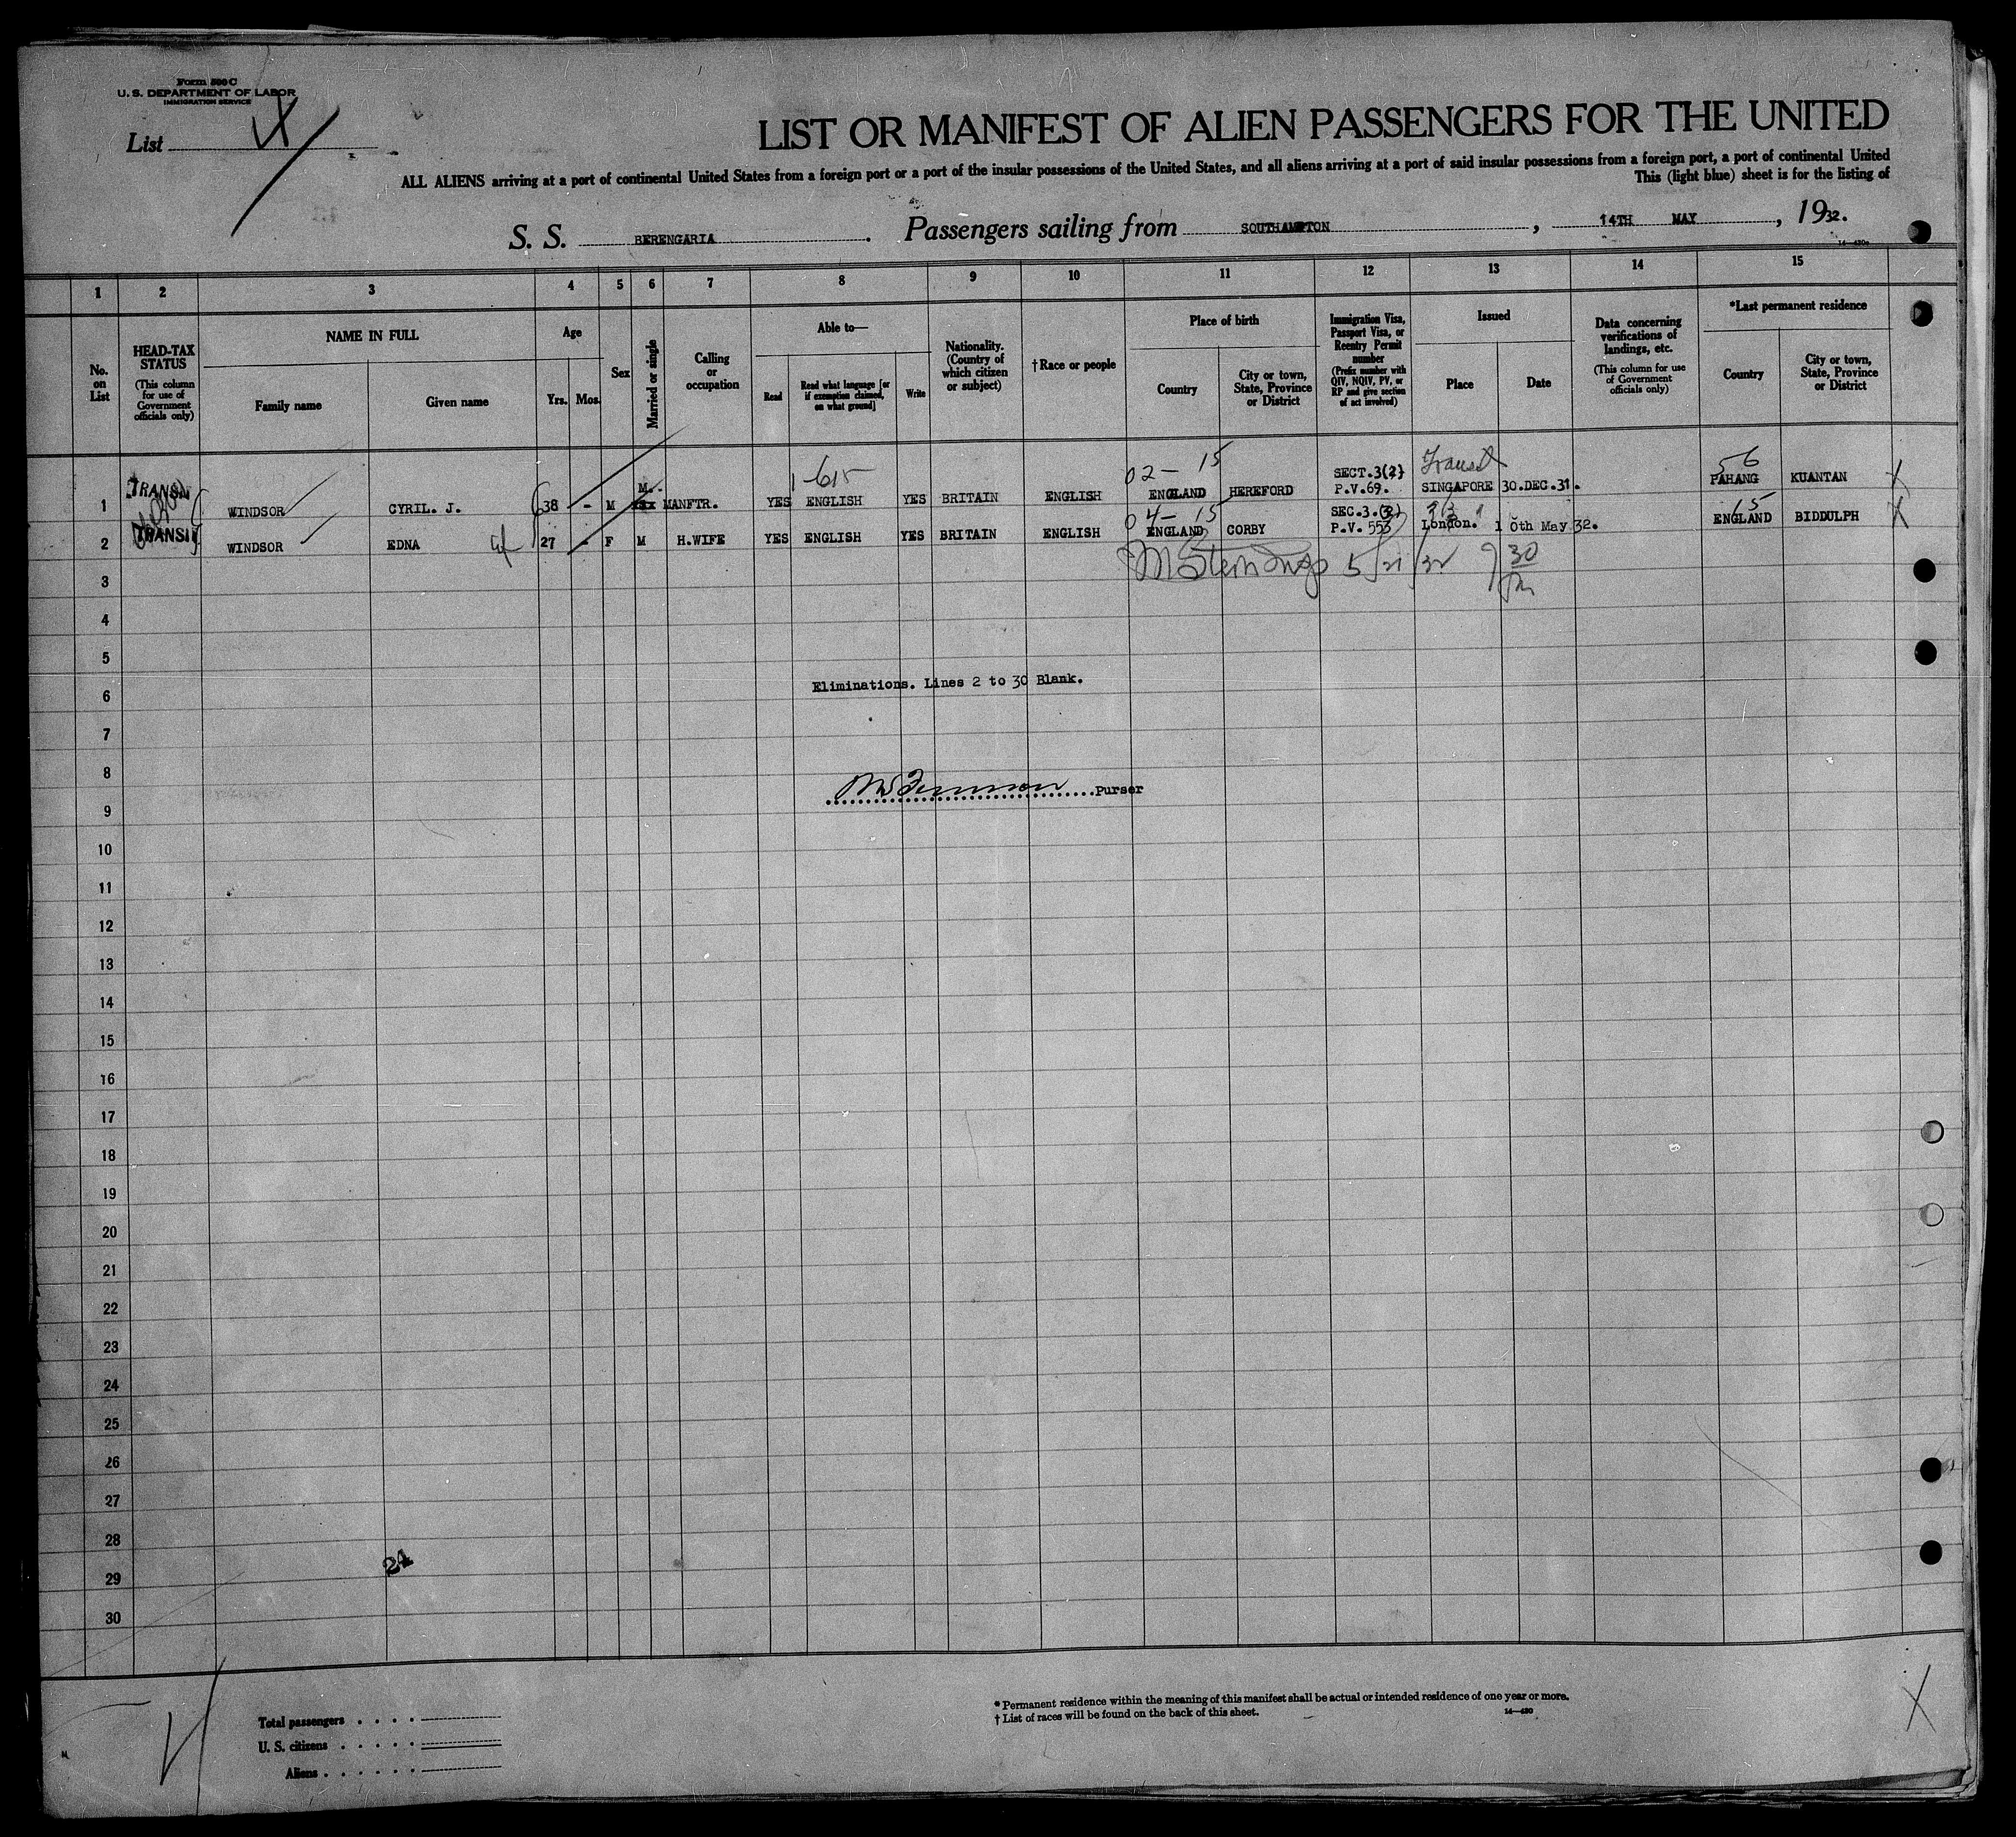 Form 500 C
U. S. DEPARTMENT OF LABOR
IMMIGRATION SERVICE
List
LIST OR MANIFEST OF ALIEN PASSENGERS FOR THE UNITED
ALL ALIENS arriving at a port of continental United States from a foreign port or a port of the insular possessions of the United States, and all aliens arriving at a port of said insular possessions from a foreign port, a port of continental United
This (light blue) sheet is for the listing of
S. S. BERENGARIA. Passengers sailing from SOUTHAMPTON, 14TH MAY, 1932.
14—430a
1 2 3 4 5 6 7 8 9 10 11 12 13 14 15
No. on List
HEAD-TAX STATUS (This column for use of Government officials only)
NAME IN FULL
Family name
Given name
Age
Yrs. Mos.
Sex
Married or single
Calling or occupation
Able to—
Read
Read what language [or if exemption claimed, on what ground]
Write
Nationality. (Country of which citizen or subject)
†Race or people
Place of birth
Country
City or town, State, Province or District
Immigration Visa, Passport Visa, or Reentry Permit number (Prefix number with QIV, NQIV, PV, or RP and give section of act involved)
Issued
Place
Date
Data concerning verifications of landings, etc. (This column for use of Government officials only)
*Last permanent residence
Country
City or town, State, Province or District
1-615 02- 15 SECT.3(2) Transit 56
1 TRANSIT WINDSOR CYRIL. J. 38 - M M. MANFTR. YES ENGLISH YES BRITAIN ENGLISH ENGLAND HEREFORD P.V.69. SINGAPORE 30.DEC.31. PAHANG KUANTAN
04- 15 SEC.3.(2) 15
2 TRANSIT WINDSOR EDNA wf 27 - F M H.WIFE YES ENGLISH YES BRITAIN ENGLISH ENGLAND CORBY P.V. 553 London. 10th May 32. ENGLAND BIDDULPH
5/21/32 9 30
3
4
5
6 Eliminations. Lines 2 to 30 Blank.
7
8
9 Purser
10
11
12
13
14
15
16
17
18
19
20
21
22
23
24
25
26
27
28
29
24
30
Total passengers
U. S. citizens
Aliens
* Permanent residence within the meaning of this manifest shall be actual or intended residence of one year or more.
† List of races will be found on the back of this sheet.
14—430